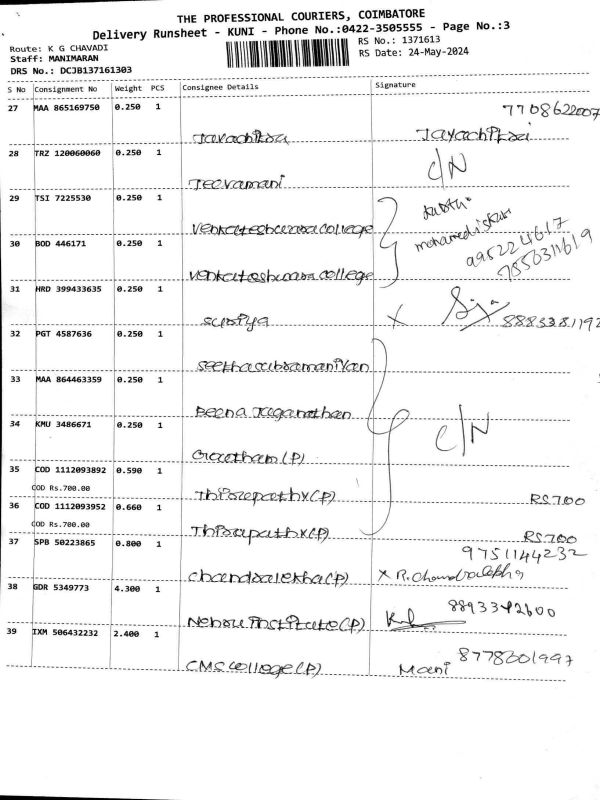 THE PROFESSIONAL COURIERS, COIMBATORE
Delivery Runsheet - KUNI - Phone No.:0422-3505555 - Page No.:3
Route: K G CHAVADI
Staff: MANIMARAN
DRS No.: DCJB137161303
RS No.: 1371613
RS Date: 24-May-2024
S No Consignment No Weight PCS Consignee Details Signature
27 MAA 865169750 0.250 1 7708622007
Jayachitra Jayachitra
28 TRZ 120060060 0.250 1 C/N
Jeevamani
29 TSI 7225530 0.250 1
Venkateshwara college
mohamed
30 BOD 446171 0.250 1
Venkateshwara college
31 HRD 399433635 0.250 1
Suriya X
32 PGT 4587636 0.250 1
33 MAA 864463359 0.250 1
Beena Juganathan
34 KMU 3486671 0.250 1 C/N
Gowtham (P)
35 COD 1112093892 0.590 1
COD Rs.700.00
RS 700
36 COD 1112093952 0.660 1
COD Rs.700.00
RS 700
37 SPB 50223865 0.800 1 9751144232
Chandralekha (P) X R. Chandralekha
38 GDR 5349773 4.300 1
Nehru institute (P)
39 IXM 506432232 2.400 1 8778601997
CMS college (P) Mani